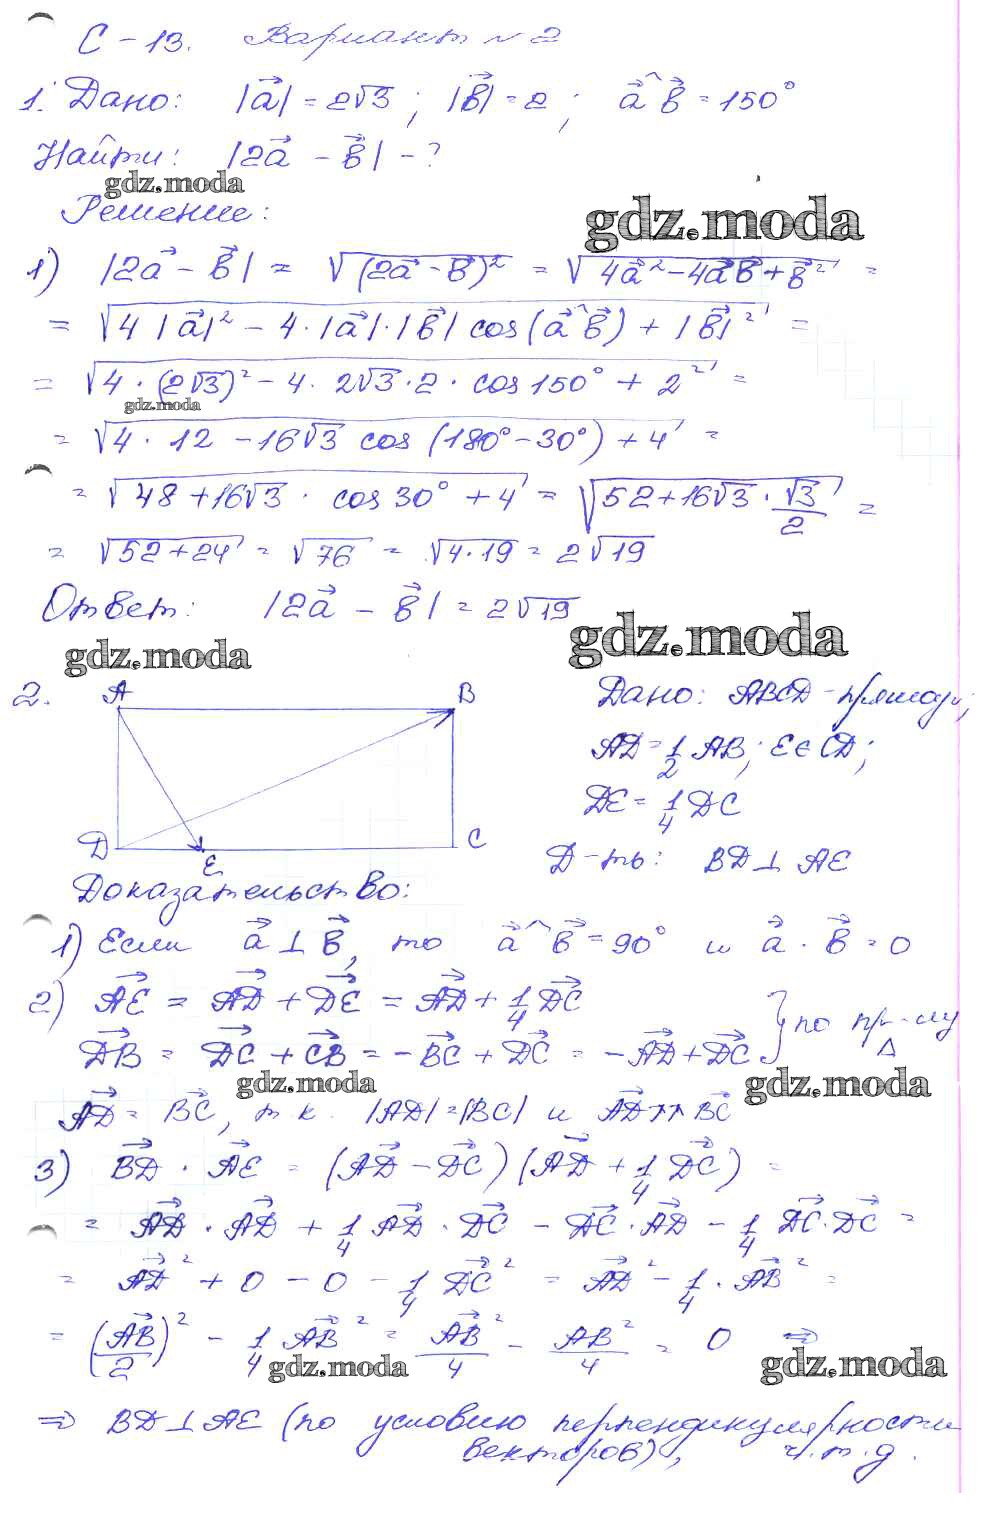 С-13. Вариант №2
1. Дано: |a⃗| = 2√3; |b⃗| = 2; a⃗^b⃗ = 150°
Найти: |2a⃗ - b⃗| - ?
gdz.moda
Решение:
gdz.moda
1) |2a⃗ - b⃗| = √((2a⃗ - b⃗)²) = √(4a⃗² - 4a⃗b⃗ + b⃗²) =
= √(4|a⃗|² - 4·|a⃗|·|b⃗| cos(a⃗^b⃗) + |b⃗|²) =
= √(4·(2√3)² - 4·2√3·2·cos 150° + 2²) =
gdz.moda
= √(4·12 - 16√3 cos(180° - 30°) + 4) =
= √(48 + 16√3 · cos 30° + 4) = √(52 + 16√3 · √3/2) =
= √(52+24) = √76 = √(4·19) = 2√19
Ответ: |2a⃗ - b⃗| = 2√19
gdz.moda
gdz.moda
2. A B
D E C
Дано: ABCD - прямоуг;
AD = 1/2 AB; E∈CD;
DE = 1/4 DC
Д-ть: BD ⊥ AE
Доказательство:
1) Если a⃗ ⊥ b⃗, то a⃗^b⃗ = 90° и a⃗ · b⃗ = 0
2) AE⃗ = AD⃗ + DE⃗ = AD⃗ + 1/4 DC⃗
DB⃗ = DC⃗ + CB⃗ = -BC⃗ + DC⃗ = -AD⃗ + DC⃗ } по пр-лу Δ
gdz.moda
gdz.moda
AD⃗ = BC⃗, т.к. |AD| = |BC| и AD⃗ ↑↑ BC⃗
3) BD⃗ · AE⃗ = (AD⃗ - DC⃗)(AD⃗ + 1/4 DC⃗) =
= AD⃗ · AD⃗ + 1/4 AD⃗ · DC⃗ - DC⃗ · AD⃗ - 1/4 DC⃗ · DC⃗ =
= AD⃗² + 0 - 0 - 1/4 DC⃗² = AD⃗² - 1/4 · AB⃗² =
= (AB⃗/2)² - 1/4 AB⃗² = AB⃗²/4 - AB²/4 = 0 ⇒
gdz.moda
gdz.moda
⇒ BD ⊥ AE (по условию перпендикулярности
векторов), ч.т.д.